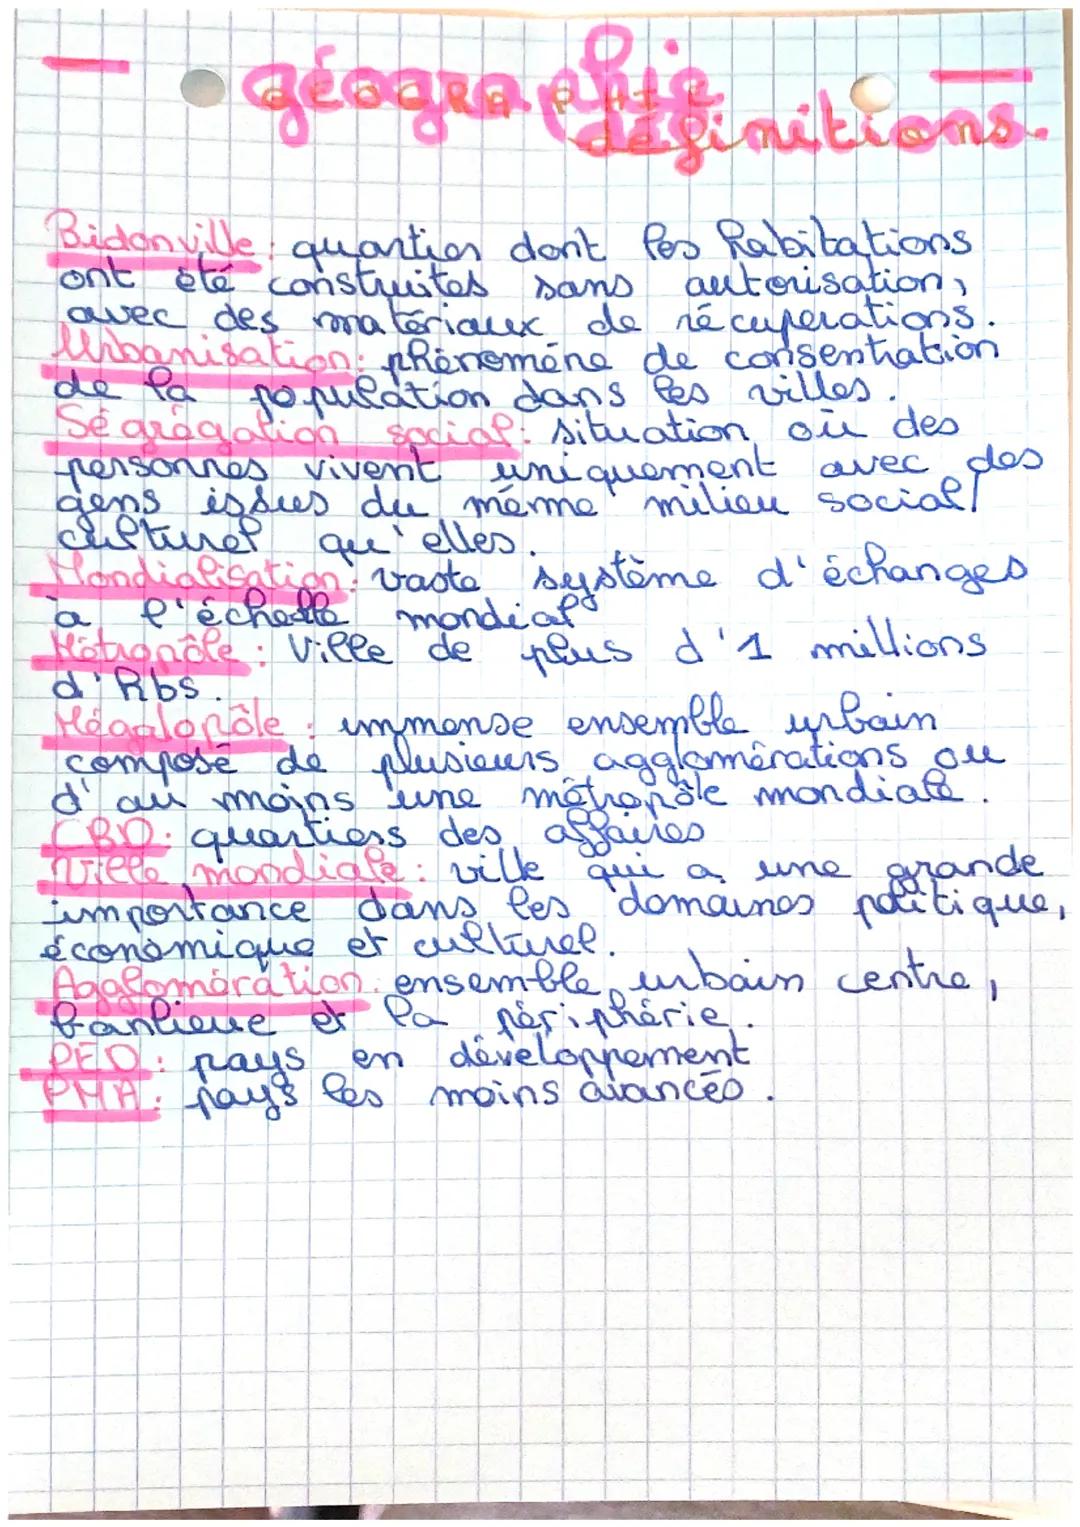 géographie
définitions.
Bidonville : quartier dont les habitations
ont été construites sans autorisation,
avec des matériaux de récuperations.
Urbanisation : phénomène de consentration
de la population dans les villes.
Ségrégation social : situation où des
personnes vivent uniquement avec des
gens issues du même milieu social/
culturel qu'elles.
Mondialisation : vaste système d'échanges
à l'échelle mondial
Métropôle : Ville de plus d'1 millions
d'hbs.
Mégalopôle : immense ensemble urbain
composé de plusieurs agglomérations ou
d'au moins une métropôle mondiale.
CBD : quartiers des affaires
Ville mondiale : ville qui a une grande
importance dans les domaines politique,
économique et culturel.
Agglomération : ensemble urbain centre,
banlieue et la périphérie.
PED : pays en développement
PMA : pays les moins avancés.